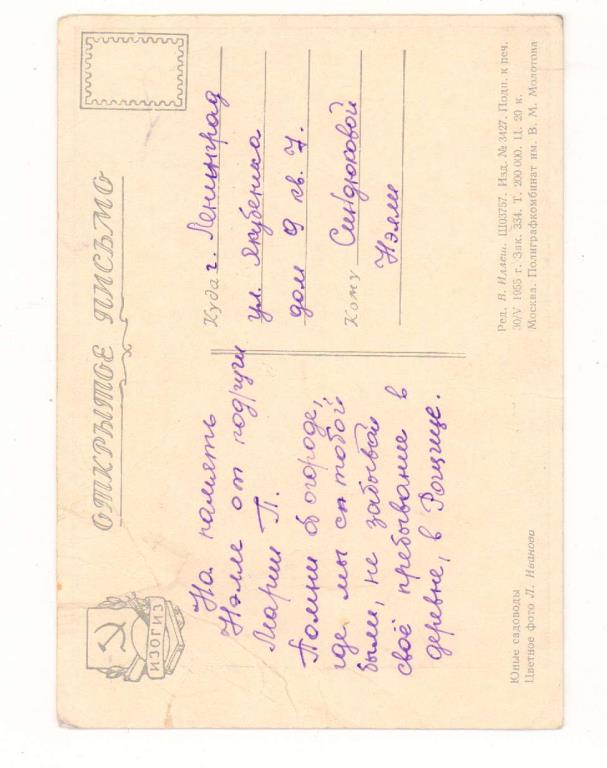 ОТКРЫТОЕ ПИСЬМО
ИЗОГИЗ
На память
Нэлле от подруги
Марии П.
Помни об огороде,
где мы с тобой
были, не забывай
своё пребывание в
деревне, в Рощице.
Куда г. Ленинград
ул. Якубеника
дом 9 кв. 7.
Кому Синдюковой
Нэлли
Юные садоводы
Цветное фото Л. Иванова
Ред. В. Иллеш. Ш03757. Изд. № 3427. Подп. к печ.
30/V 1955 г. Зак. 334. Т. 200 000. Ц. 20 к.
Москва. Полиграфкомбинат им. В. М. Молотова